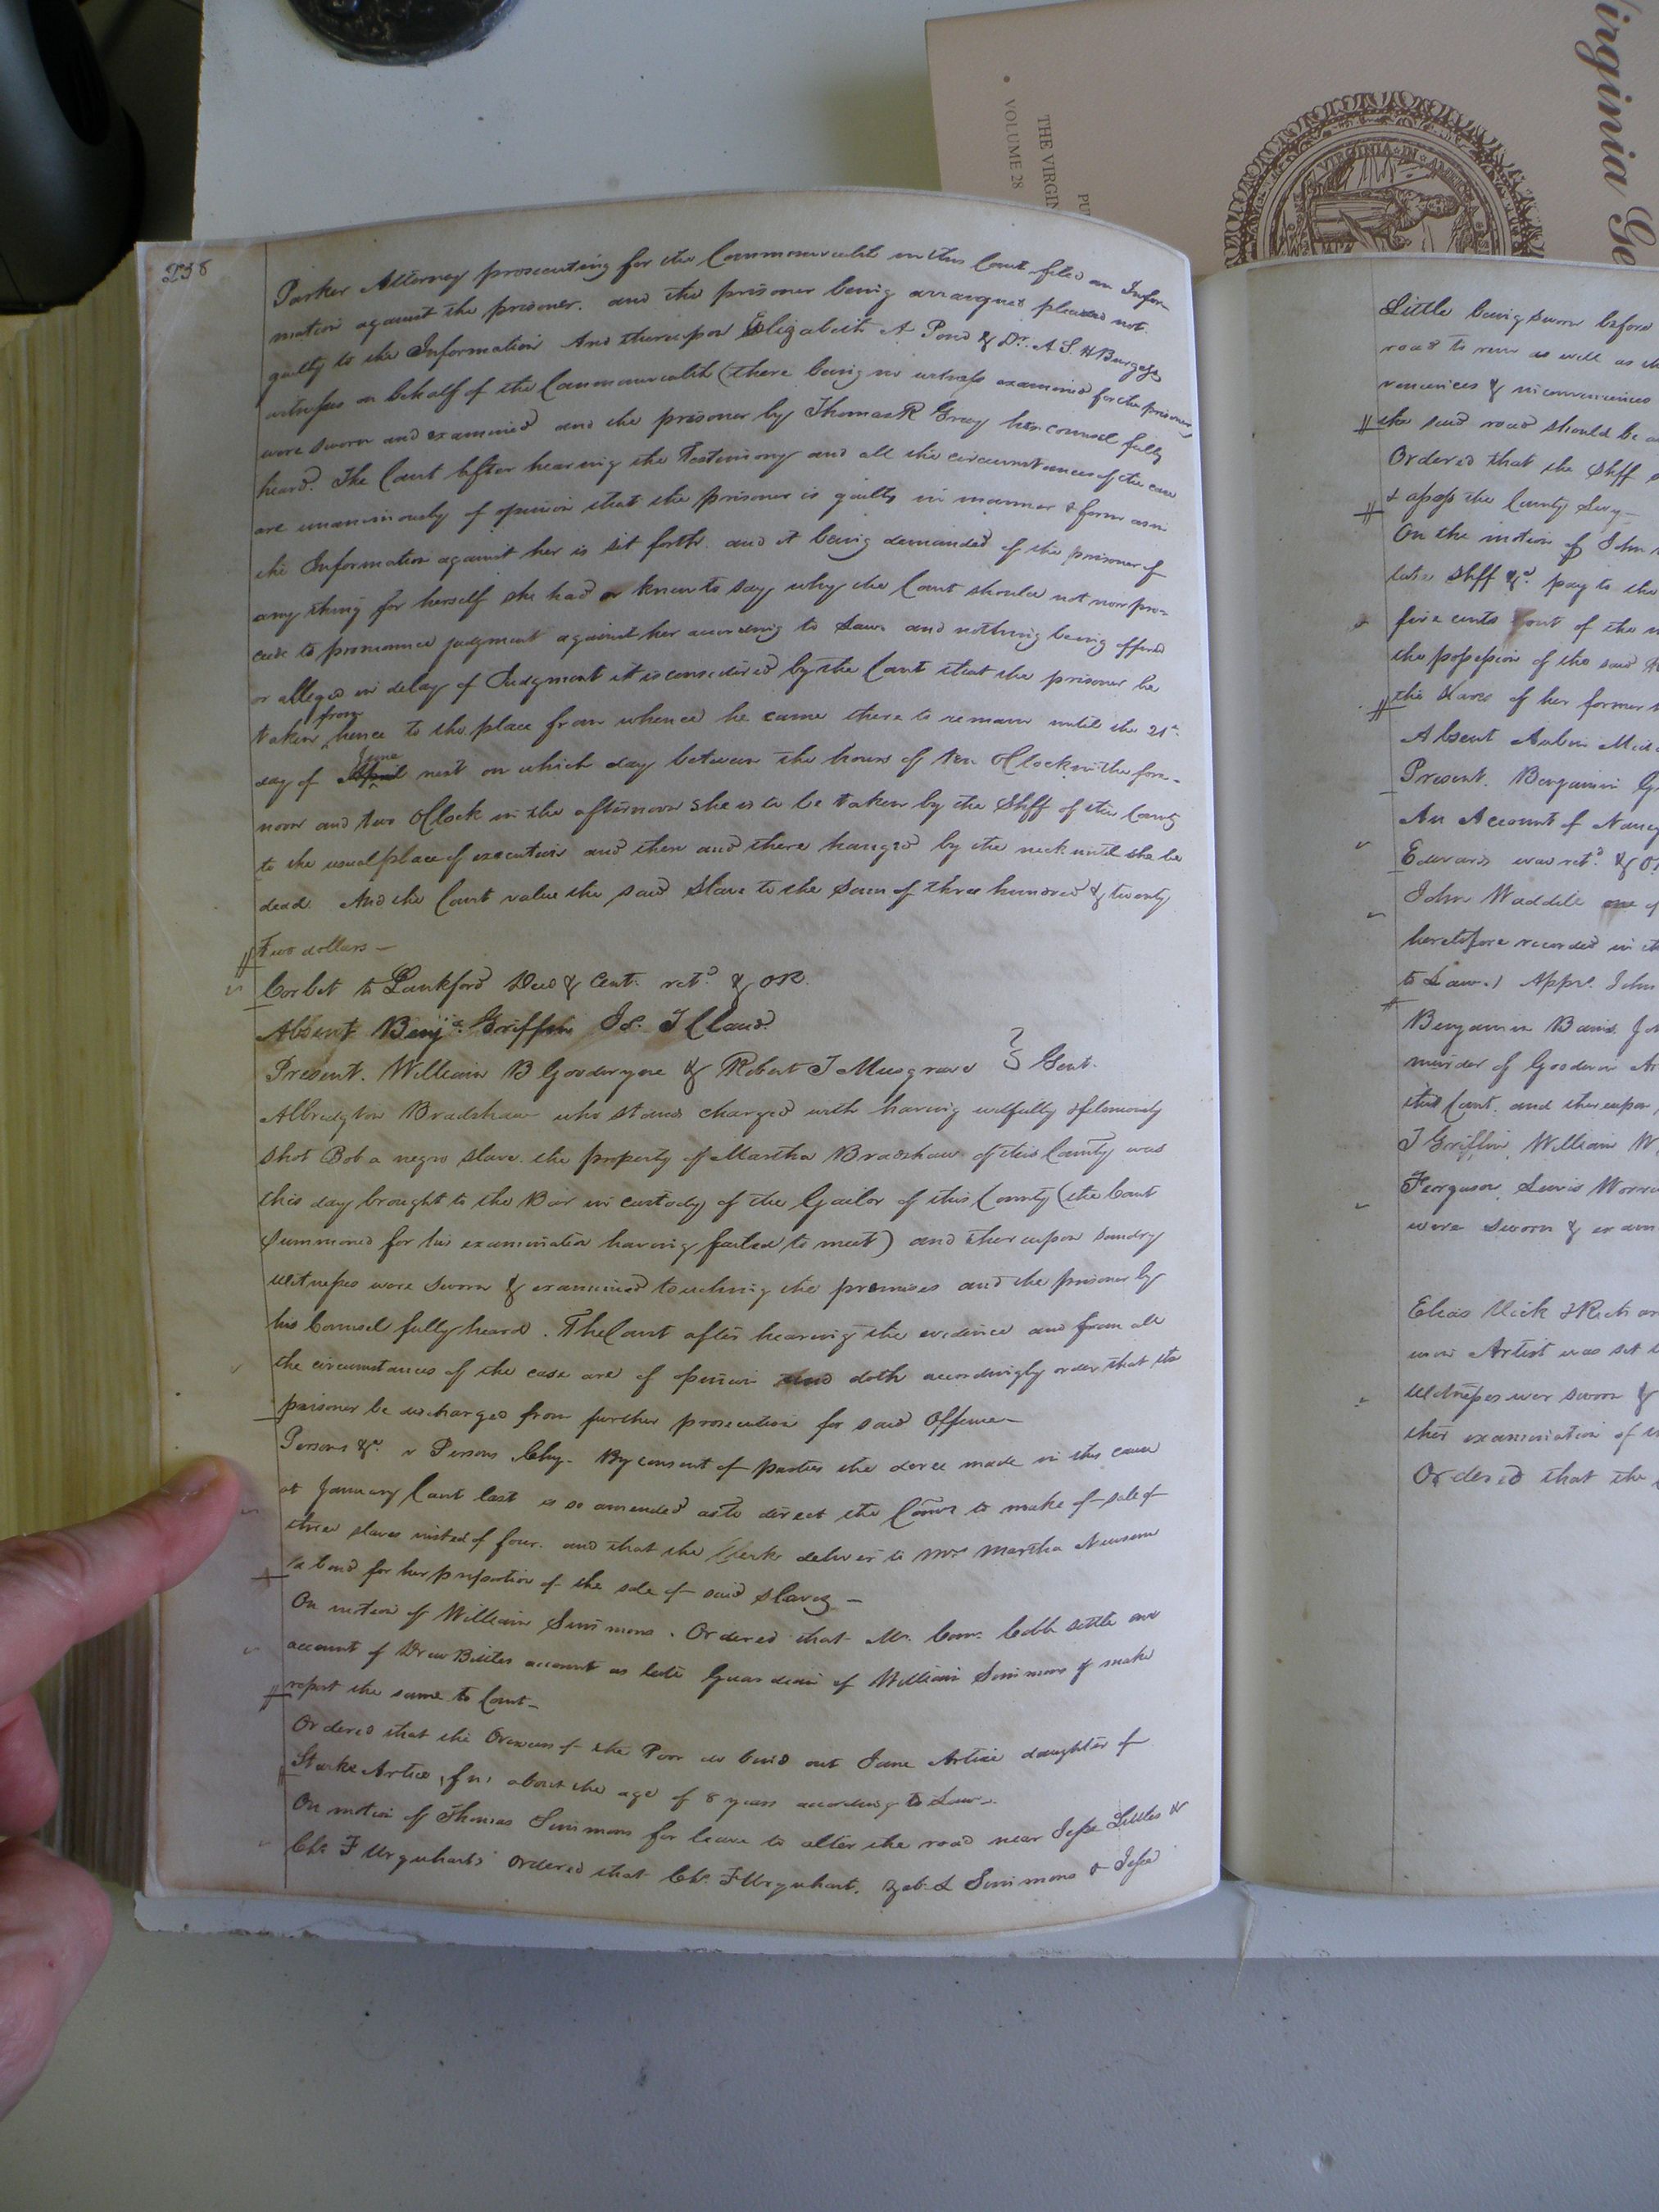 irginia Ge
VIRGINIA IN A
PU
THE VIRGIN
VOLUME 28
238
Parker Attorney prosecuting for the Commonwealth in this Court filed an Infor
mation against the prisoner. and the prisoner being arraigned pleaded not
guilty to the Information And thereupon Elizabeth A Pond & Dr. A. S. H Burgess
witnesses on behalf of the Commonwealth (there being no witness examined for the prisoner)
were sworn and examined and the prisoner by Thomas R Gray her counsel fully
heard. The Court after hearing the Testimony and all the circumstances of the case
are unanimously of opinion that the prisoner is guilty in manner & form as in
the Information against her is set forth. and it being demanded of the prisoner if
any thing for herself she had or knew to say why the Court should not now pro-
ceed to pronounce judgment against her according to Law. and nothing being offered
or alleged in delay of Judgment it is considered by the Court that the prisoner be
taken from hence to the place from whence he came there to remain until the 21st
day of April June next on which day between the hours of ten Oclock in the fore-
noon and two Oclock in the afternoon she is to be taken by the Shff of this County
to the usual place of execution and then and there hanged by the neck until she be
dead. And the Court value the said slave to the Sum of three hundred & twenty
Two dollars -
Corbet to Lankford Deed & Cert. retd. & OR.
Absent Benja. Griffin Js. J Claud.
Present. William B Goodwyne & Robert T Musgrave } Gent.
Albridgton Bradshaw who stands charged with having wilfully & feloniously
shot Bob a negro slave the property of Martha Bradshaw of this County was
this day brought to the Bar in custody of the Gailor of this County (the Court
summoned for his examination having failed to meet) and thereupon sundry
witnesses were sworn & examined touching the premises and the prisoner by
his Counsel fully heard. The Court after hearing the evidence and from all
the circumstances of the case are of opinion and doth accordingly order that the
prisoner be discharged from further prosecution for said Offence -
Persons &c. v Persons Chy. By consent of parties the decree made in this cause
at January Court last is so amended as to direct the Comrs to make of sale of
three slaves insted of four. and that the Clerk deliver to Mrs Martha Newsom
a bond for her proportion of the sale of said slaves -
On motion of William Simmons. Ordered that Mr. Comr. Cobb settle an
account of Drew Bittles account as late Guardian of William Simmons & make
report the same to Court -
Ordered that the Overseers of the Poor do bind out Jane Artice daughter of
Starke Artice, fn, about the age of 8 years according to Law.
On motion of Thomas Simmons for leave to alter the road near Jesse Littles &
Chs. F Urquharts ordered that Chs. F Urquhart. Zab. L Simmons & Jesse
Little being sworn before
road to view as well as th
veniences & inconveniences
the said road should be a
Ordered that the Shff
& assess the County Levy -
On the motion of John
late Shff &c. pay to the
five cents out of the
the possession of the said
the slave of her former
Absent
Present. Benjamin G
An Account of Nancy
Edwards was retd. & O
John Waddill one of
heretofore recorded in th
to Law.) Appr. John
Benjamin Bains
murder of Goodwin
this Court. and thereupon
J Griffin, William W
Ferguson, Lewis Worre
were sworn & exam
Elias
was set
witnesses wer sworn &
ther examination of
Ordered that the